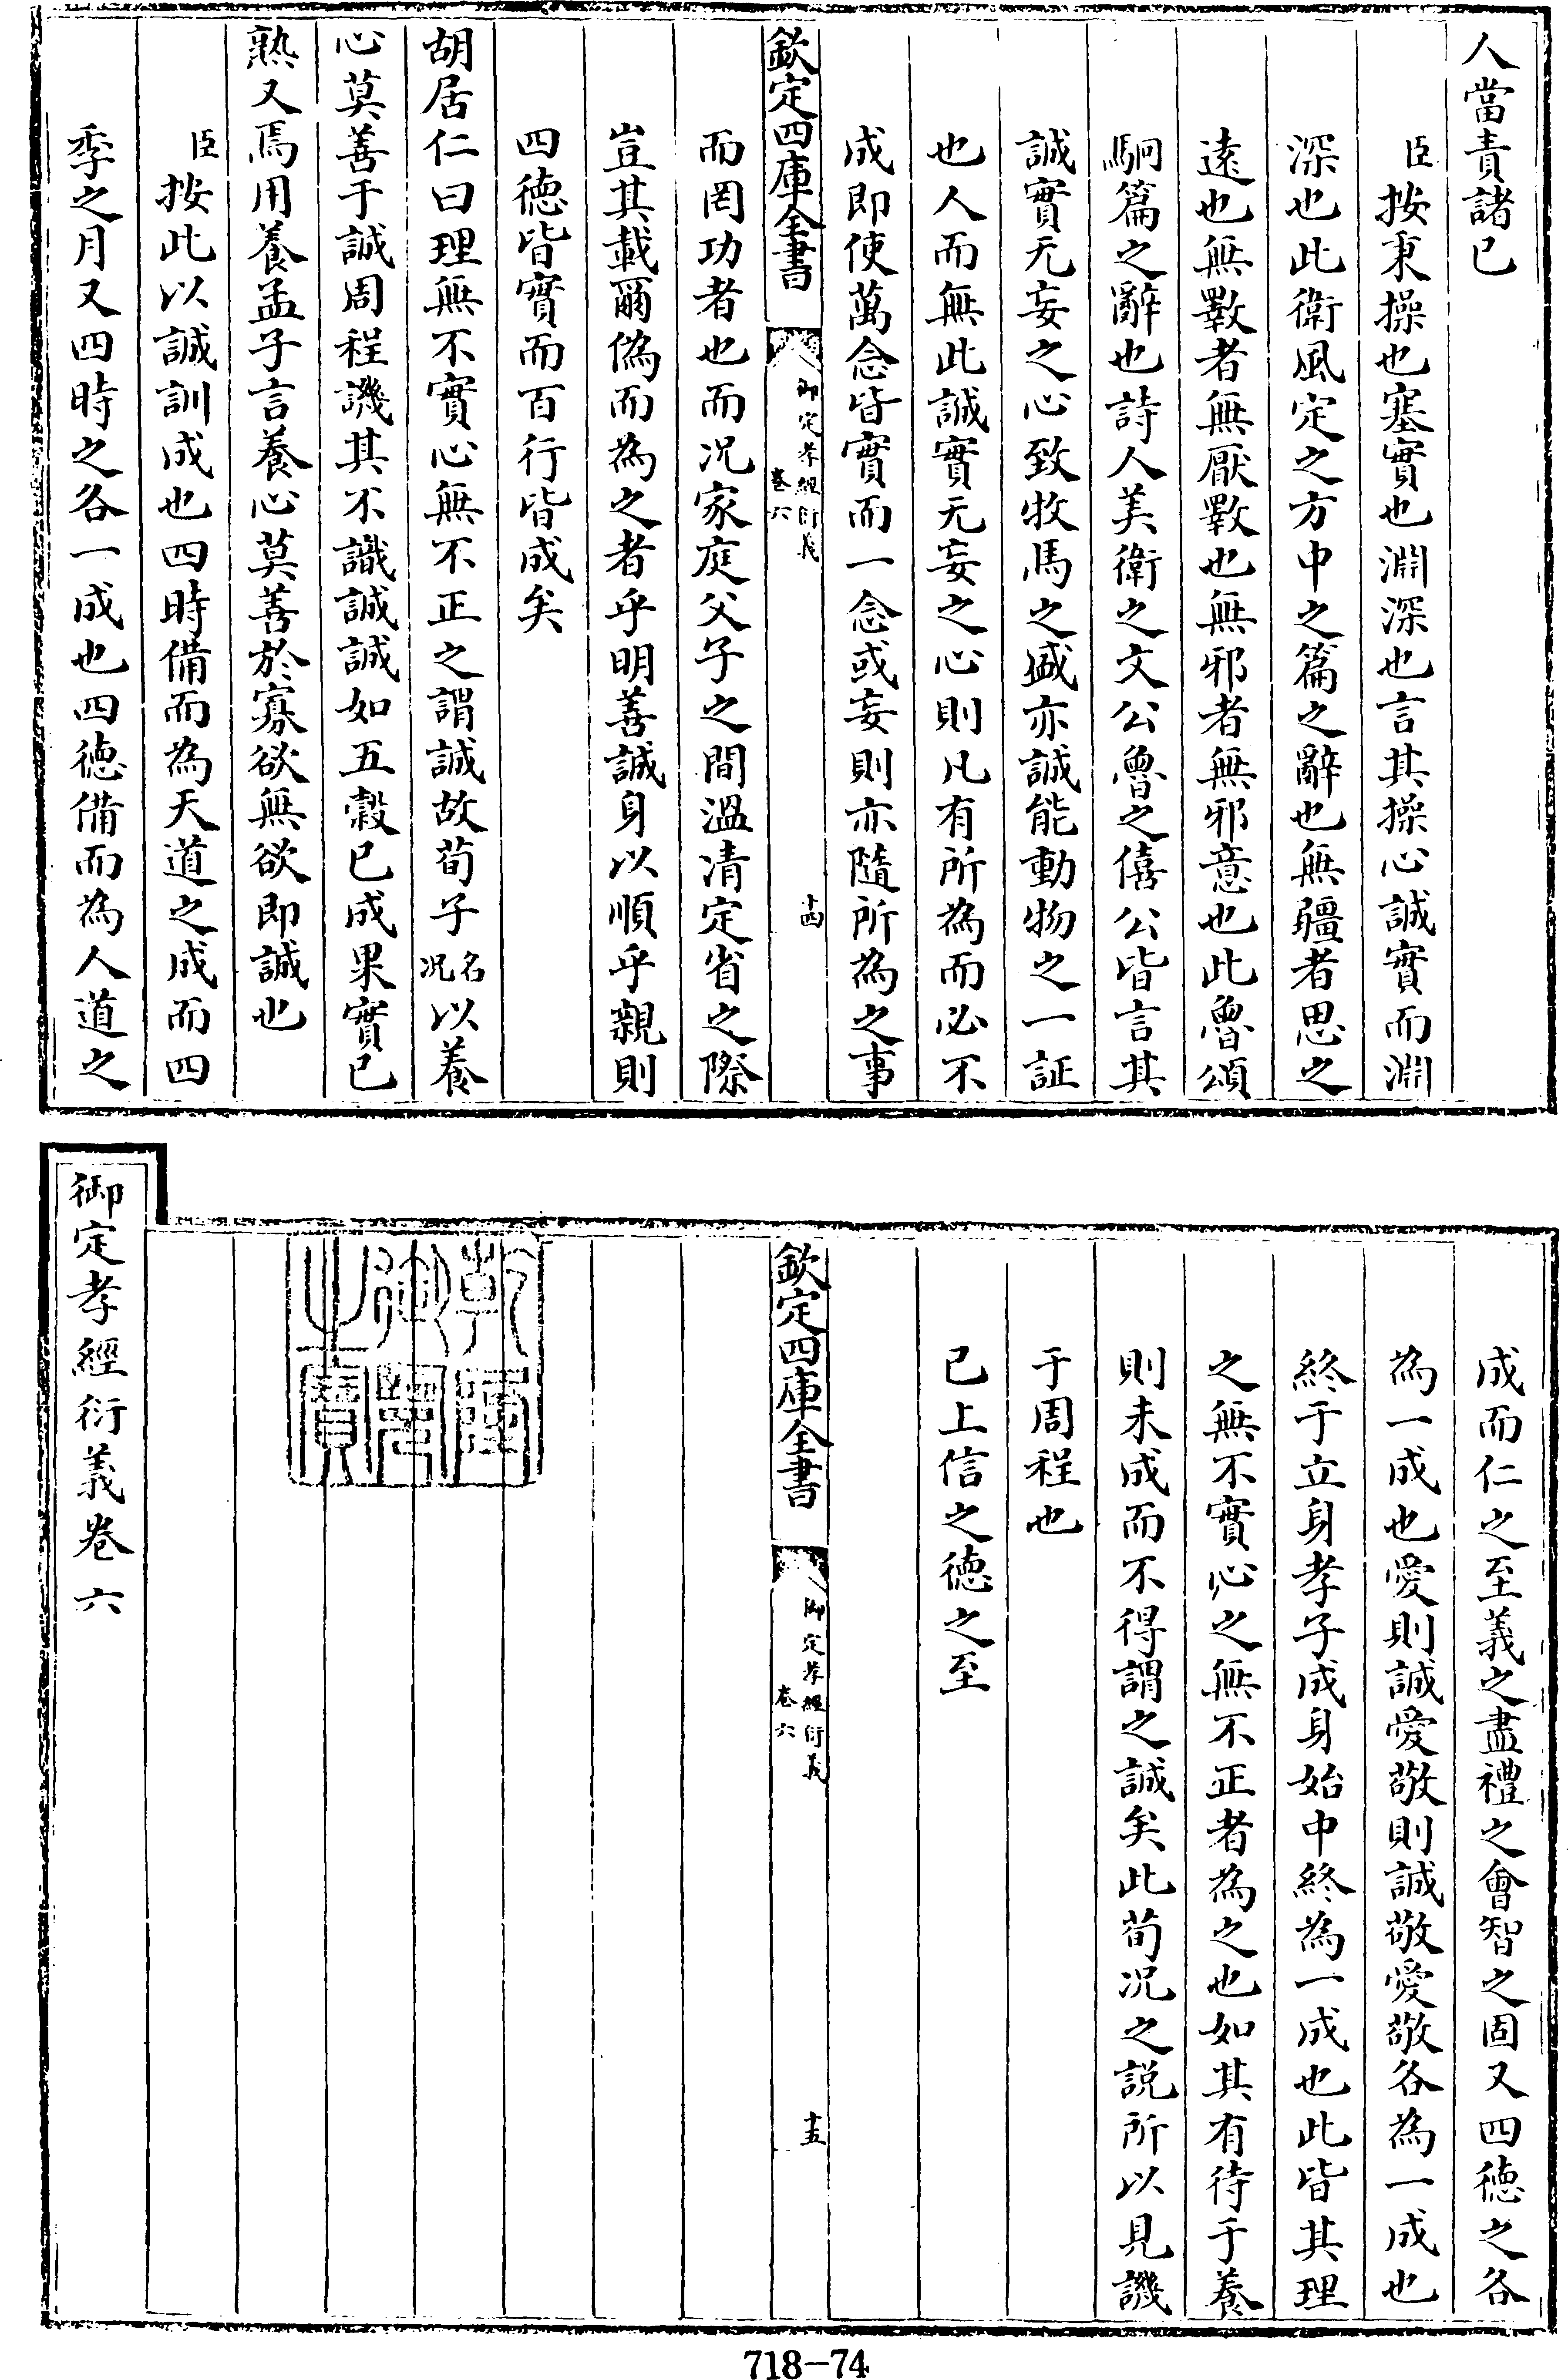 人當責諸已
臣按秉操也塞實也淵深也言其操心誠實而淵
深也此衛風定之方中之篇之辭也無疆者思之
遠也無斁者無厭斁也無邪者無邪意也此魯頌
駉篇之辭也詩人美衛之文公魯之僖公皆言其
誠實无妄之心致牧馬之盛亦誠能動物之一証
也人而無此誠實无妄之心則凡有所為而必不
成即使萬念皆實而一念或妄則亦隨所為之事
欽定四庫全書
御定孝經衍義
卷六
十四
而罔功者也而况家庭父子之間溫凊定省之際
豈其載爾偽而為之者乎明善誠身以順乎親則
四德皆實而百行皆成矣
胡居仁曰理無不實心無不正之謂誠故荀子名况以養
心莫善于誠周程譏其不識誠誠如五穀已成果實已
熟又焉用養孟子言養心莫善於寡欲無欲即誠也
臣按此以誠訓成也四時備而為天道之成而四
季之月又四時之各一成也四德備而為人道之
成而仁之至義之盡禮之會智之固又四德之各
為一成也愛則誠愛敬則誠敬愛敬各為一成也
終于立身孝子成身始中終為一成也此皆其理
之無不實心之無不正者為之也如其有待于養
則未成而不得謂之誠矣此荀况之說所以見譏
于周程也
已上信之德之至
欽定四庫全書
御定孝經衍義
卷六
十五
乾隆御覽之寶
御定孝經衍義卷六
718-74